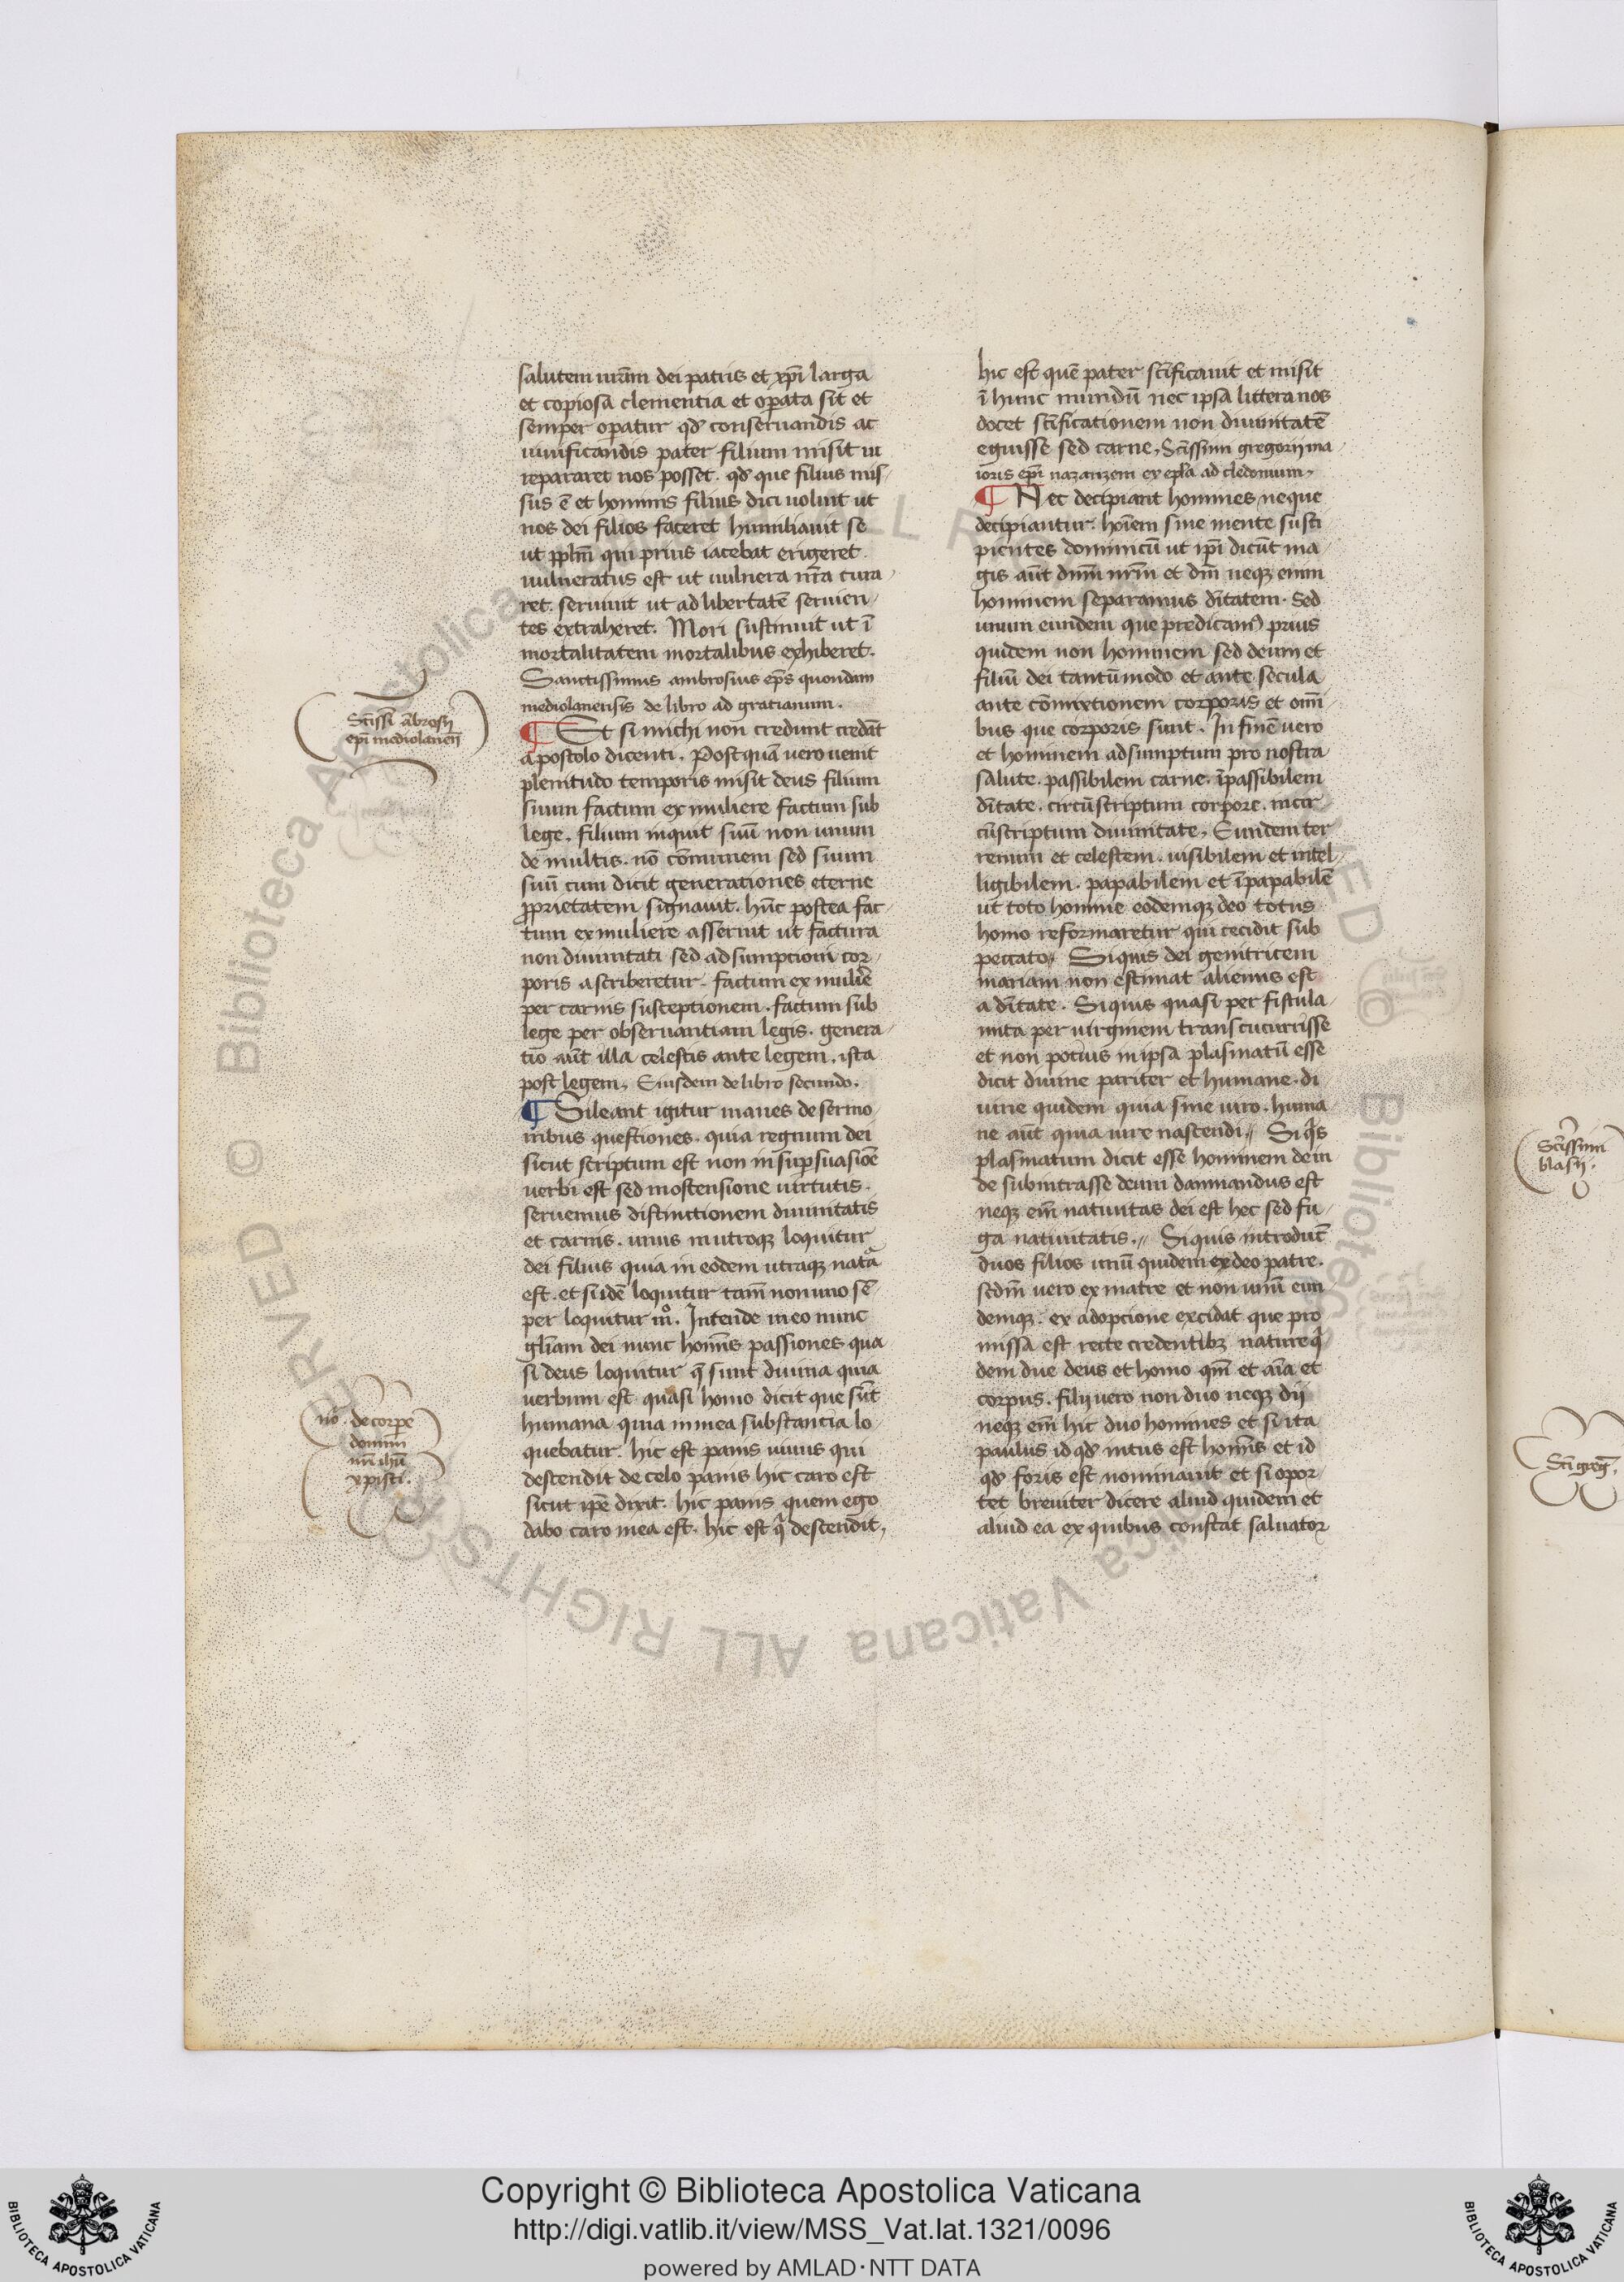 salutem nr̄am dei patris et xp̄i larga
et copiosa clementia et oꝑata sit et
semper oꝑatur qd' conseruandis ac
uiuificandis pater filium misit ut
repararet nos posset. qd' que filius mis
sus ē et hominis filius dici uoluit ut
nos dei filios faceret humiliauit se
ut pplm̄ qui prius iacebat erigeret
uulneratus est ut uulnera nr̄a cura
ret. seruiuit ut ad libertatē seruien
tes extraheret. Mori sustinuit ut ī
mortalitatem mortalibus exhiberet.
Sanctissimus ambrosius ep̄s quondam
mediolanensis de libro ad gratianum.
Sc̄issi ābrosij
epī mediolanen̄
¶ Et si michi non credunt credāt
apostolo dicenti. Postquā uero uenit
plenitudo temporis misit deus filium
suum factum ex muliere factum sub
lege. filium inquit suū non unum
de multis. nō cōmunem sed suum
suū cum dicit generationes eterne
ꝓprietatem signauit. hūc postea fac
tum ex muliere asseruit ut factura
non diuinitati sed adsumpcioni cor
poris ascriberetur. factum ex muliē
per carnis susceptionem. factum sub
lege per obseruantiam legis. genera
tio aūt illa celestis ante legem. ista
post legem. Eiusdem de libro secundo.
¶ Sileant igitur inanes de sermo
nibus questiones. quia regnum dei
sicut scriptum est non in suꝑsuasiōe
uerbi est sed in ostensione uirtutis.
seruemus distinctionem diuinitatis
et carnis. unus in utroqꝫ loquitur
dei filius quia in eodem utraqꝫ natā
est. et si idē loquitur tam̄ non uno sē
per loquitur m°. Intende in eo nunc
gl̄iam dei nunc hom̄is passiones qua
si deus loquitur q̄ sunt diuina quia
uerbum est quasi homo dicit que sūt
humana quia in mea substantia lo
quebatur. hic est panis uiuus qui
descendit de celo panis hic caro est
sicut ip̄e dixit. hic panis quem ego
dabo caro mea est. hic est qͥ descendit,
no. de corꝑe
domini
nr̄i ihū
xpisti.
hic est quē pater sc̄ificauit et misit
ī hunc mundū nec ipsa littera nos
docet sc̄ificationem non diuinitatē
eguisse sed carnē. Sc̄issimi gregorij ma
ioris ep̄i nazanzem ex epl̄a ad cledonium.
¶ Nec decipiant homines neque
decipiantur. hoīem sine mente susci
pientes dominicū ut ip̄i dicūt ma
gis aūt dnm̄ nr̄m et dm̄ neqꝫ enim
hominem separamus dītatem. Sed
unum eundem que predicamꝰ prius
quidem non hominem sed deum et
filiū dei tantūmodo et ante secula
ante cōmixtionem corporis et omī
bus que corporis sunt. In finē uero
et hominem adsumptum pro nostra
salute. passibilem carne. īpassibilem
dītate. circūscriptum corpore. incir
cūscriptum diuinitate. Eundem ter
renum et celestem. uisibilem et intel
ligibilem. papabilem et īpapabilē
ut toto homine eodemqꝫ deo totus
homo reformaretur qui cecidit sub
peccato. Siquis dei genitricem
mariam non estimat alienus est
a dītate. Siquis quasi per fistula
mita per uirginem transcucurrisse
et non potius in ipsa plasmatū esse
dicit diuine pariter et humane. di
uine quidem quia sine uiro. huma
ne aūt quia iure nascendi. Siqͥs
plasmatum dicit esse hominem dein
de subintrasse deum damnandus est
neqꝫ em̄ natiuitas dei est hec sed fu
ga natiuitatis. Siquis introducit
duos filios unū quidem ex deo patre.
scdm̄ uero ex matre et non unū eun
demqꝫ. ex adopcione excidat que pro
missa est recte credentibꝫ nature qͥ
dem due deus et homo qm̄ et aīa et
corpus. filij uero non duo neqꝫ dij
neqꝫ em̄ hic duo homines et si ita
paulus id qd' intus est hom̄is et id
qd' foris est nominauit et si opor
tet breuiter dicere aliud quidem et
aliud ea ex quibus constat saluator
Sc̄issimi
blasij.
Sc̄i greḡ.
Copyright © Biblioteca Apostolica Vaticana
http://digi.vatlib.it/view/MSS_Vat.lat.1321/0096
powered by AMLAD·NTT DATA
BIBLIOTECA APOSTOLICA VATICANA
BIBLIOTECA APOSTOLICA VATICANA